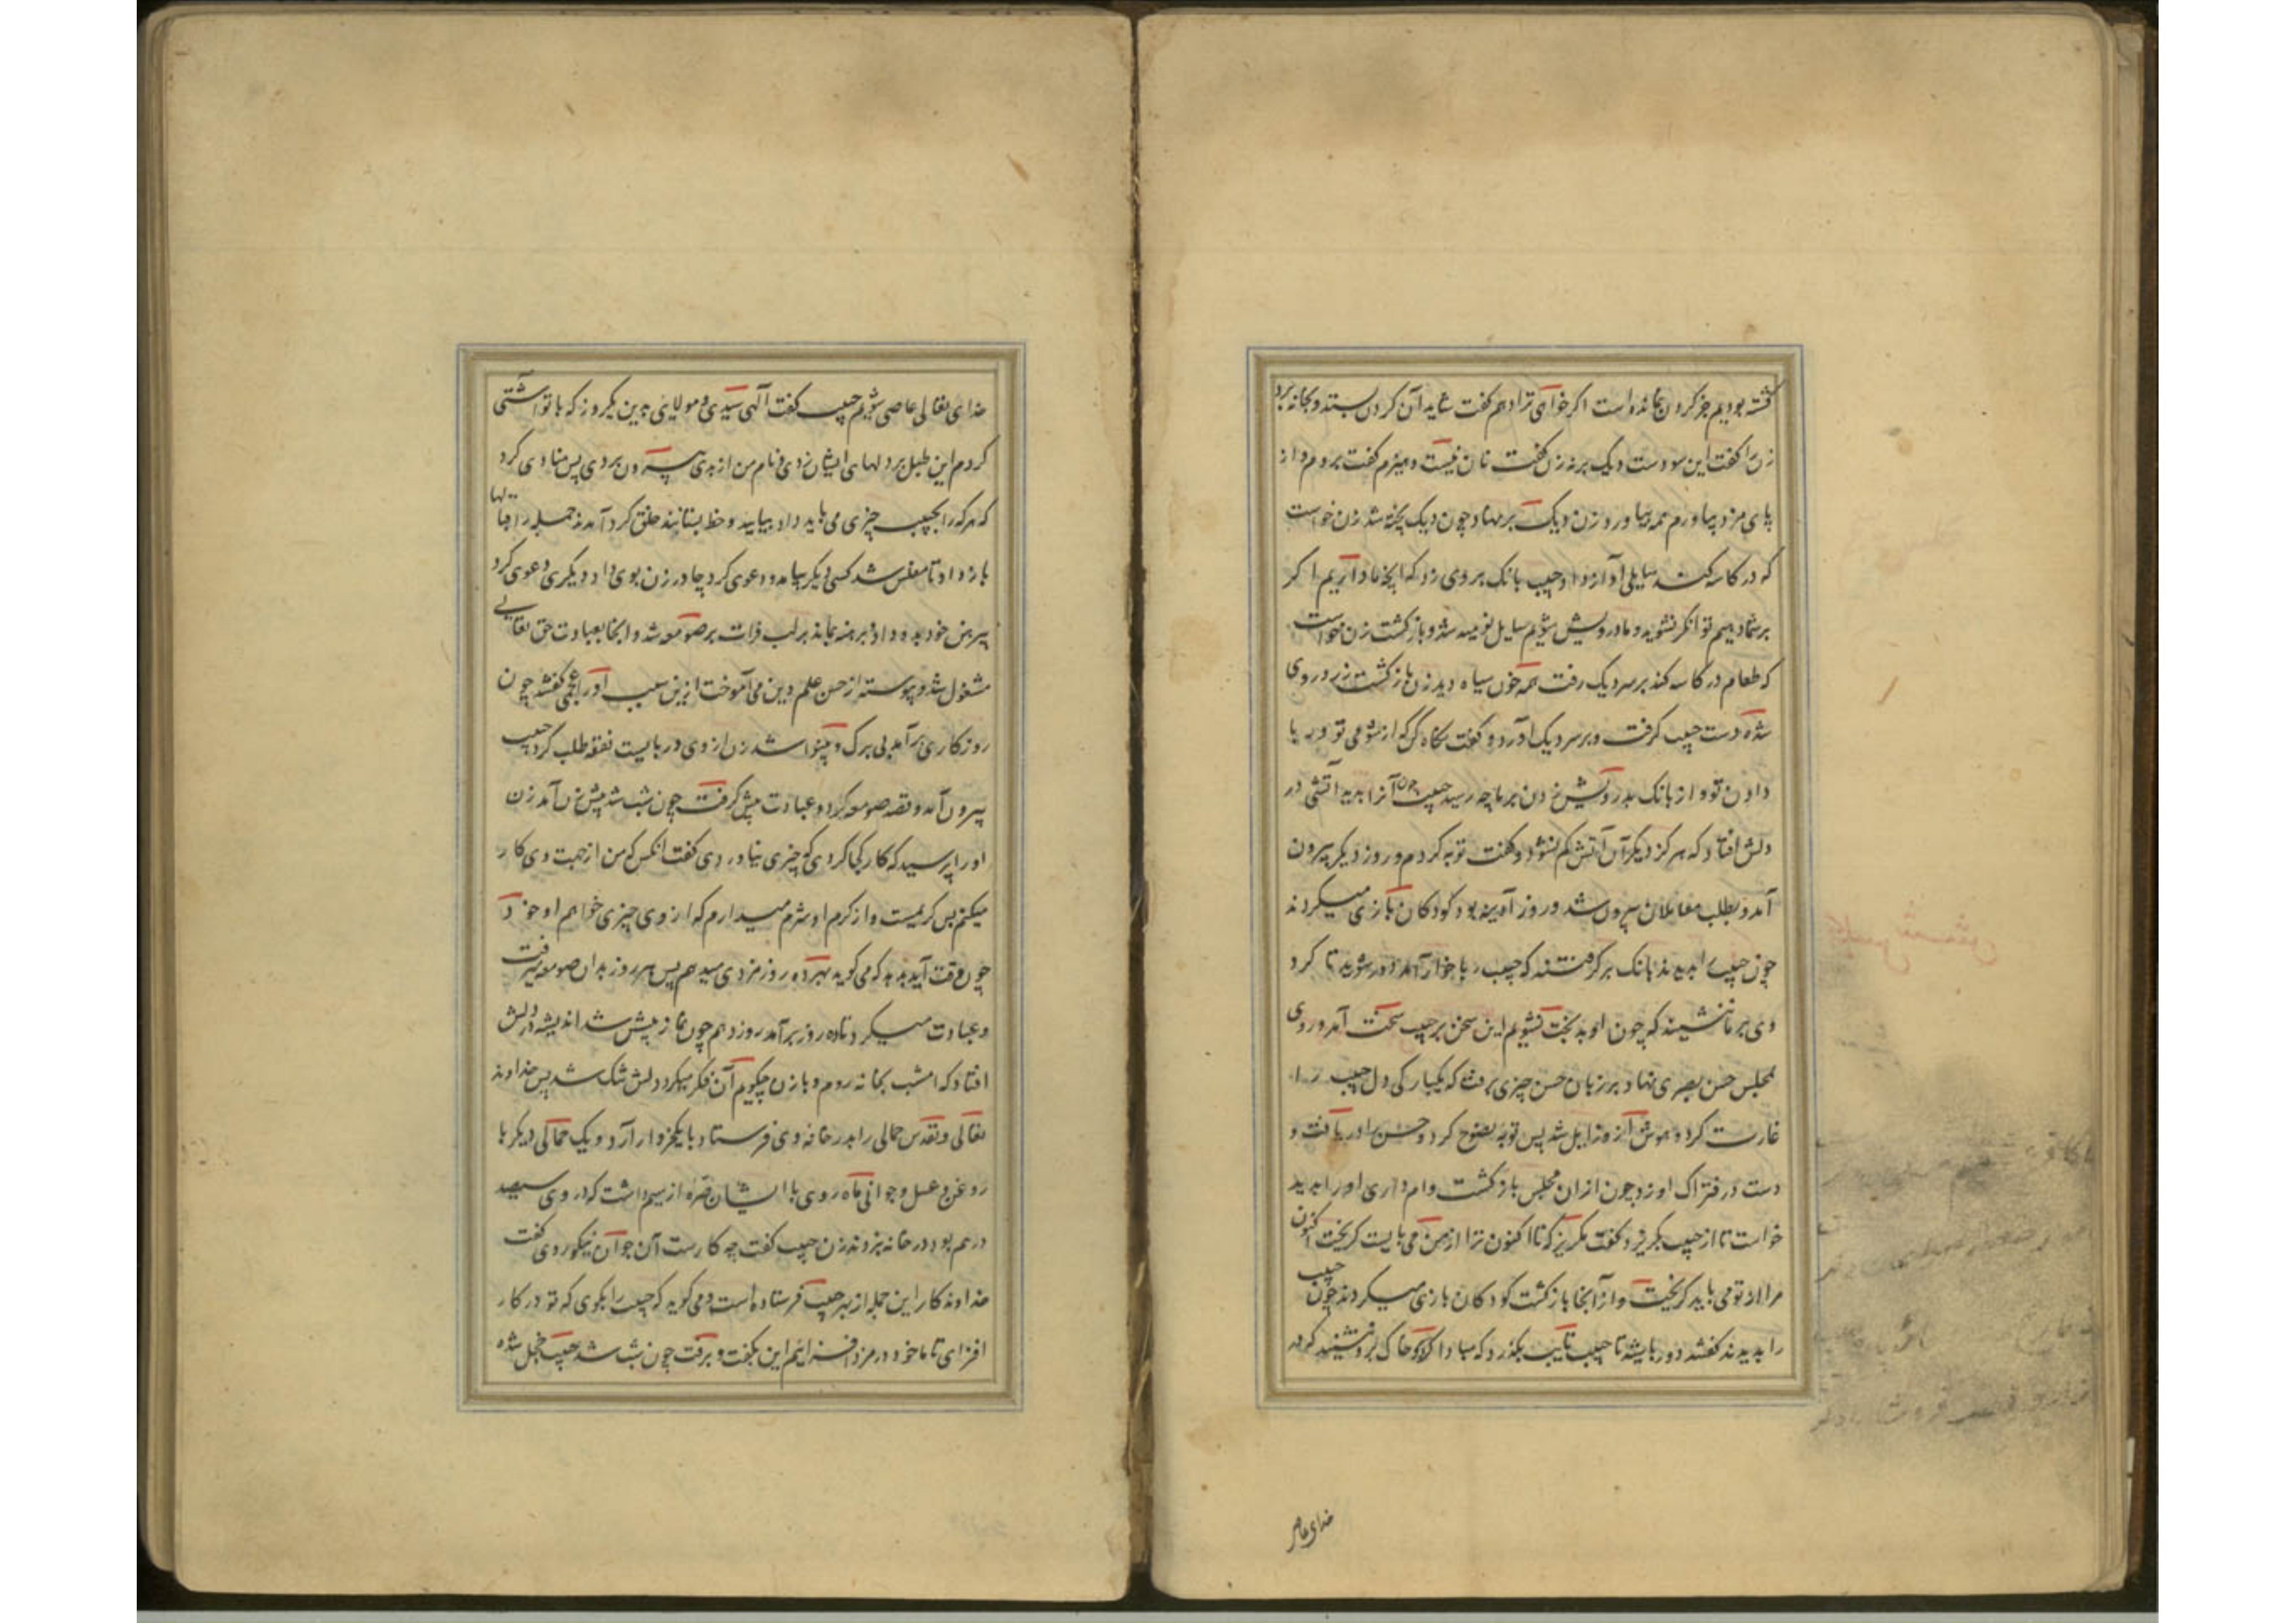 کشته بودیم جز کردن نمانده است اکر خواهی ترا دهم کفت شاید آن کردن بستد و بخانه برد
زن را کفت این سودست دیک برنه زن کفت نان نیست و هیزم کفت بروم و از
پای مزد بیاورم همه بیاورد زن دیک برنهاد چون دیک پخته شد زن خواست
که در کاسه کند سایلی آواز داد حبیب بانک بر وی زد که آنچه ما داریم اکر
بر شما دهیم توانکر نشوید و ما درویش شویم سایل نومید شد و بازکشت زن خواست
که طعام در کاسه کند بر سر دیک رفت همه خون سیاه دید زن بازکشت زرد روی
شده دست حبیب کرفت و بر سر دیک آورد و کفت نکاه کن که از شومی تو و ربا
دادن تو و از بانک بدرویش زدن بر ما چه رسید حبیب چون آنرا بدید آتشی در
دلش افتاد که هرکز دیکر آن آتش کم نشود و کفت توبه کردم و روز دیکر بیرون
آمد و بطلب معاملان بیرون شد و روز آدینه بود کودکان بازی میکردند
چون حبیب را بدیدند بانک برکرفتند که حبیب رباخوار آمد دور شوید تا کرد
وی بر ما ننشیند که چون او بدبخت نشویم این سخن بر حبیب سخت آمد و روی
بمجلس حسن بصری نهاد و بر زبان حسن چیزی برفت که یکبارکی دل حبیب را
غارت کرد و هوش از و زایل شد پس توبه نصوح کرد و حسن او را یافت و
دست در فتراک او زد چون از ان مجلس بازکشت وام داری او را بدید
خواست تا از حبیب بکریزد کفت مکریز که تا اکنون ترا از من می بایست کریخت اکنون
مرا از تو می باید کریخت و از آنجا بازکشت کودکان بازی میکردند چون حبیب
را بدیدند کفتند دور باشید تا حبیب تایب بکذرد که مبادا که کرد خاک بر و نشیند که در
خدای عاصی
خدای تعالی عاصی شویم حبیب کفت آلهی سیدی و مولایی بدین یکروز که با تو آشتی
کردم این طبل بر دلهای ایشان زدی و نام من از بدی بیرون بردی پس منادی کرد
که هر که را بحبیب چیزی می باید داد بیایید و خط بستانند خلق کرد آمدند جمله را قبالها
باز داد تا مفلس شد کسی دیکر بیامد و دعوی کرد چادر زن بوی داد دیکری دعوی کرد
پیرهن خود بدو داد و برهنه بماند بر لب فرات بر صومعه شد و انجا بعبادت حق تعالی
مشغول شد و پیوسته از حسن علم دین می آموخت ازین سبب او را عجمی کفتند چون
روزکاری برآمد بی برک و بینوا شد زن از وی دربایست نفقه طلب کرد حبیب
بیرون آمد و قصد صومعه کرد و عبادت پیش کرفت چون شب شد پیش زن آمد زن
او را پرسید که کار کجا کردی که چیزی نیاوردی کفت انکس که من از جهت وی کار
میکنم بس کریمست و از کرم او شرم میدارم که از وی چیزی خواهم او خود
چون وقت آید بدهد که می کوید بهر ده روز مزد می دهم پس هر روز بدان صومعه میرفت
و عبادت میکرد تا ده روز برآمد روز دهم چون نماز پیش شد اندیشه در دلش
افتاد که امشب بخانه روم و با زن چکویم آن فکر میکرد دلش تنک شد پس خداوند
تعالی و تقدس حمالی را بدر خانه وی فرستاد با یکخروار آرد و یک حمالی دیکر با
روغن و عسل و جوانی ماه روی با ایشان صره از سیم داشت که در وی سیصد
درم بود در خانه بزدند زن حبیب کفت چه کارست آن جوان نیکوروی کفت
خداوند کار این جمله از بهر حبیب فرستاده است و می کوید که حبیب را بکوی که تو در کار
افزای تا ما خود در مزد افزاییم این بکفت و برفت چون شب شد حبیب خجل شده